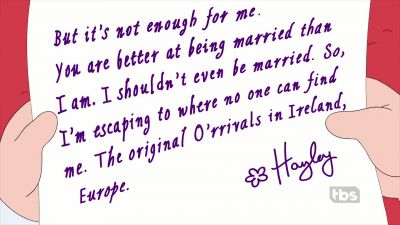 But it's not enough for me.
You are better at being married than
I am. I shouldn't even be married. So,
I'm escaping to where no one can find
me. The original O'rrivals in Ireland,
Europe.
Hayley
tbs